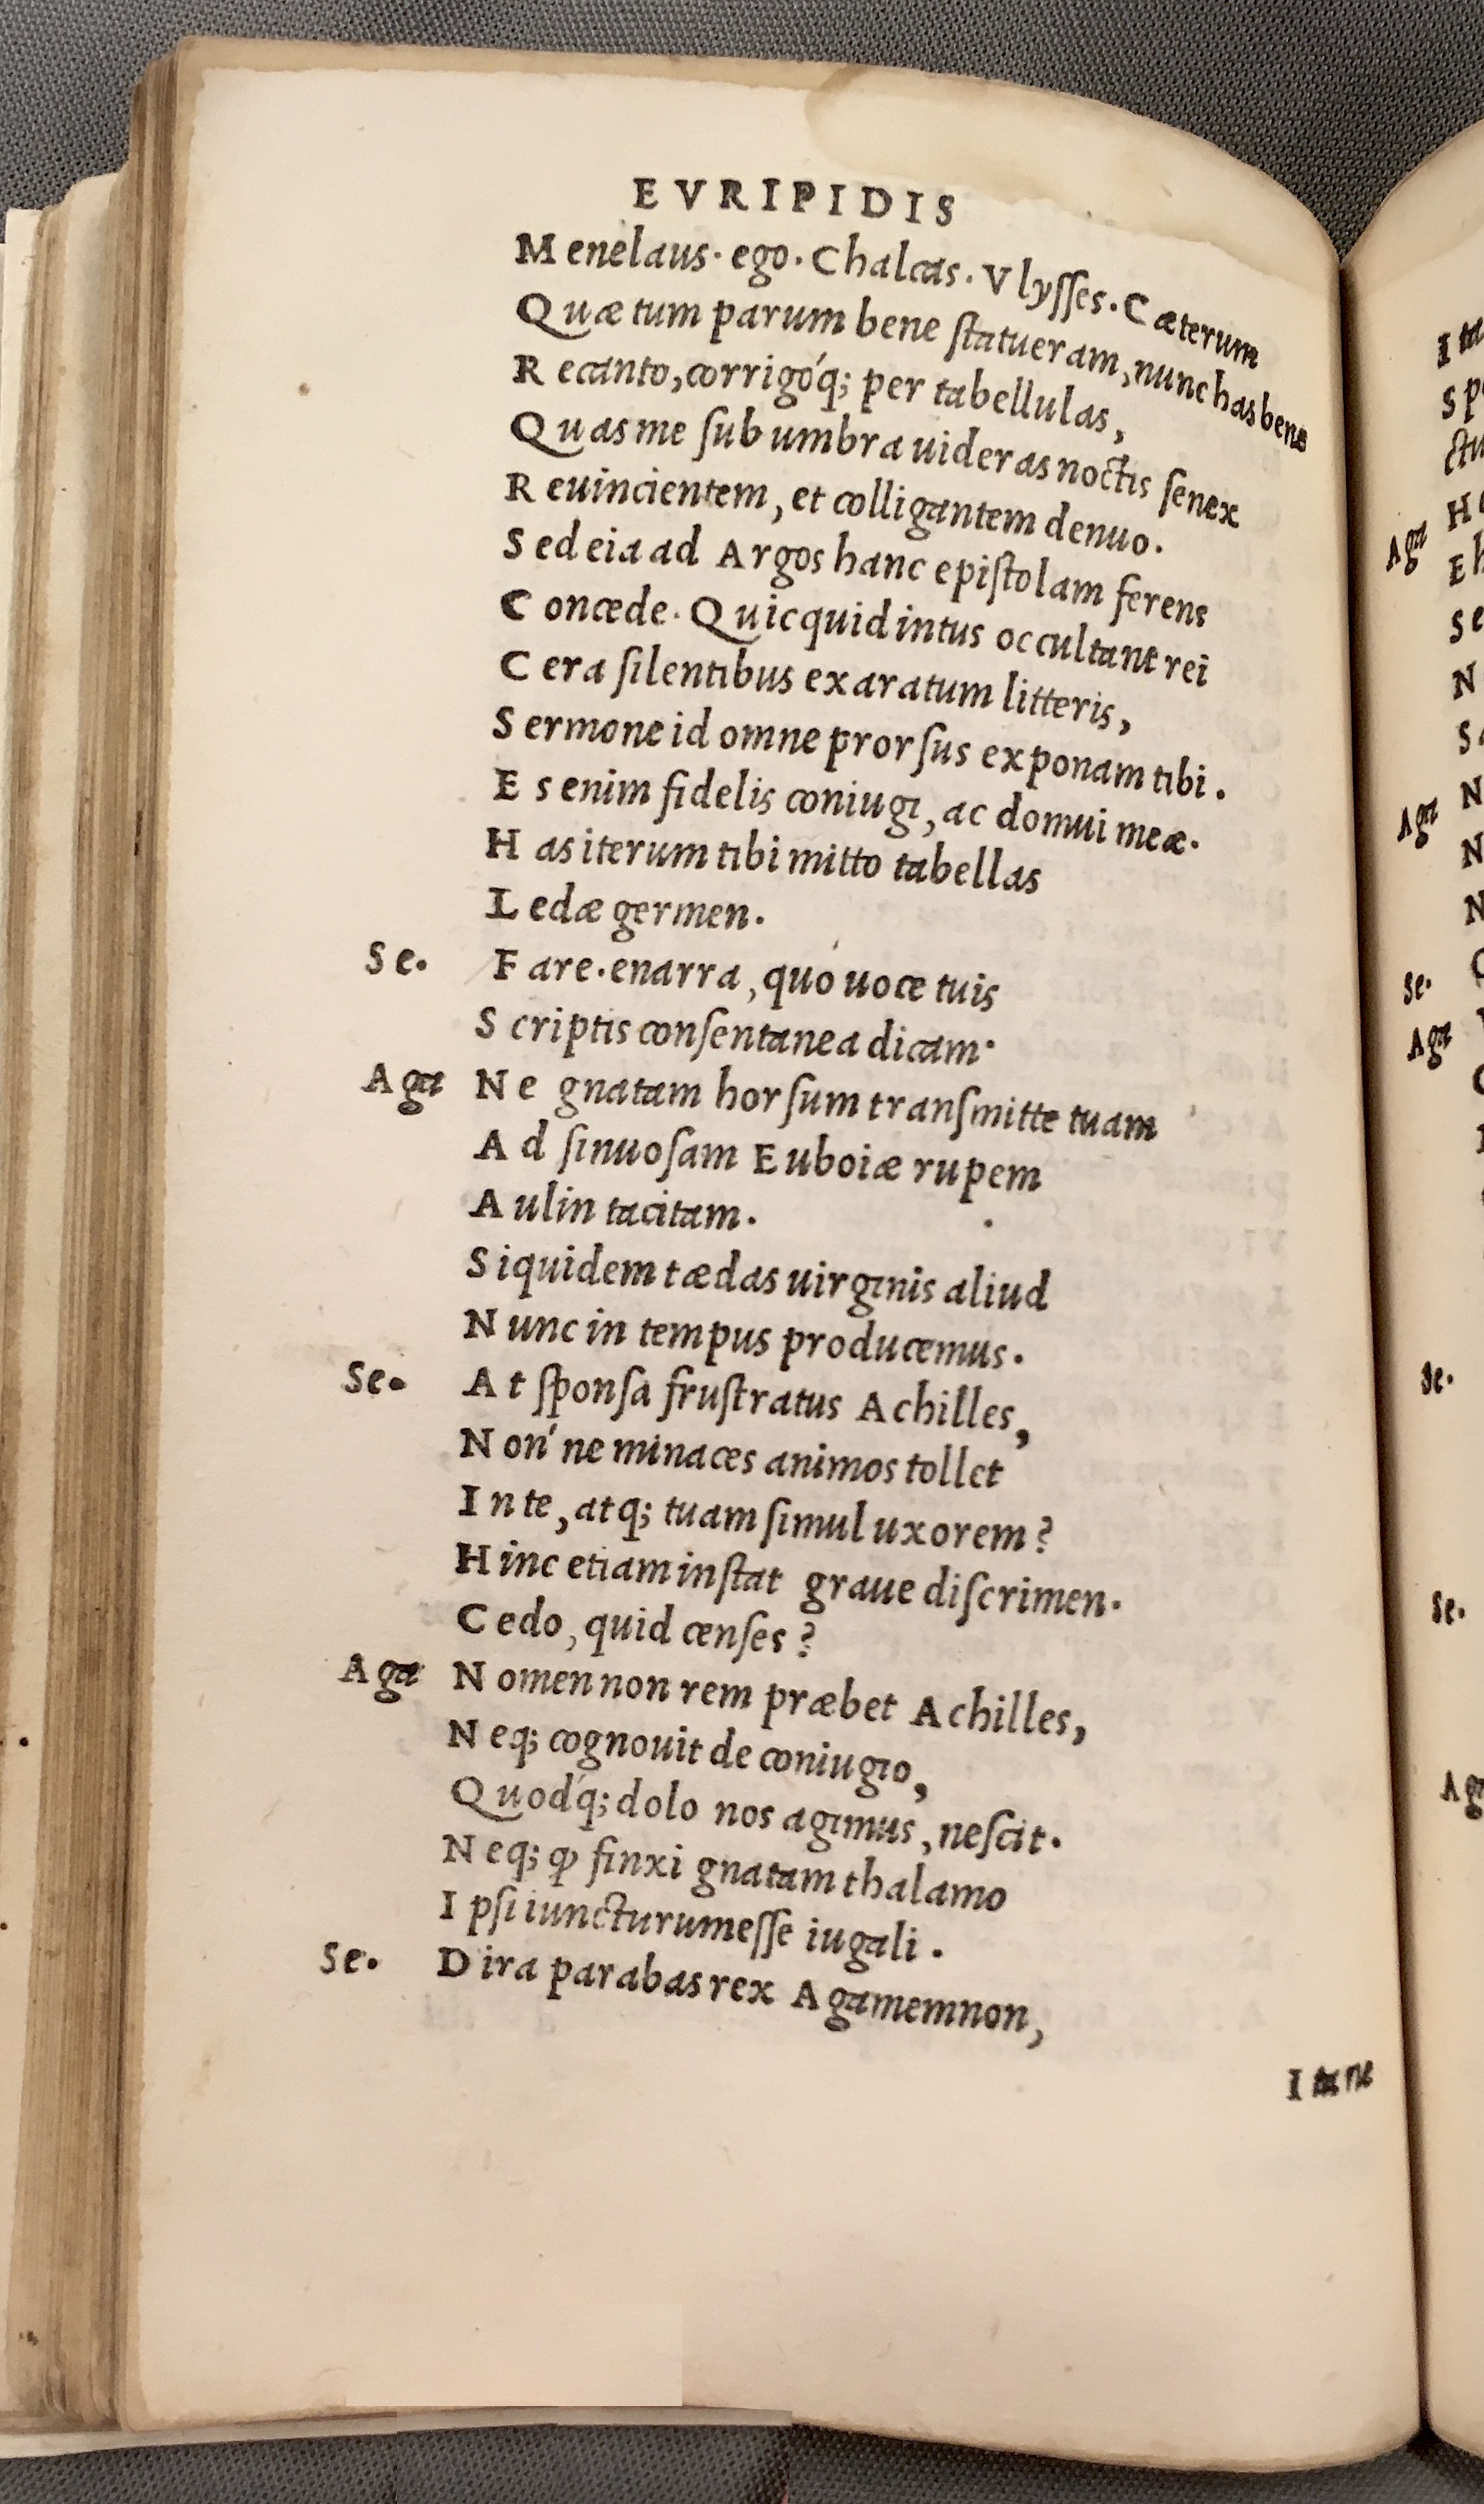 EVRIPIDIS
Menelaus· ego· Chalcas· Vlysses· Cæterum
Quæ tum parum bene statueram, nunc has bene
Recanto, corrigóq; per tabellulas,
Quas me sub umbra uideras noctis senex
Reuincientem, et colligantem denuo.
Sed eia ad Argos hanc epistolam ferens
Concede. Quicquid intus occultant rei
Cera silentibus exaratum litteris,
Sermone id omne prorsus exponam tibi.
Es enim fidelis coniugi, ac domui meæ.
Has iterum tibi mitto tabellas
Ledæ germen.
Se. Fare. enarra, quó uoce tuis
Scriptis consentanea dicam.
Aga Ne gnatam horsum transmitte tuam
Ad sinuosam Euboiæ rupem
Aulin tacitam.
Siquidem tædas uirginis aliud
Nunc in tempus producemus.
Se. At sponsa frustratus Achilles,
Non´ne minaces animos tollet
In te, atq; tuam simul uxorem?
Hinc etiam instat graue discrimen.
Cedo, quid censes?
Aga Nomen non rem præbet Achilles,
Neq; cognouit de coniugio,
Quod´q; dolo nos agimus, nescit.
Neq; ꝙ finxi gnatam thalamo
Ipsi iuncturum esse iugali.
Se. Dira parabas rex Agamemnon,
Itane
Ita
Sp
ctu
H
Aga Eh
Se
N
Sa
Aga N
N
N
Se.
Aga
Se.
Se.
Ag